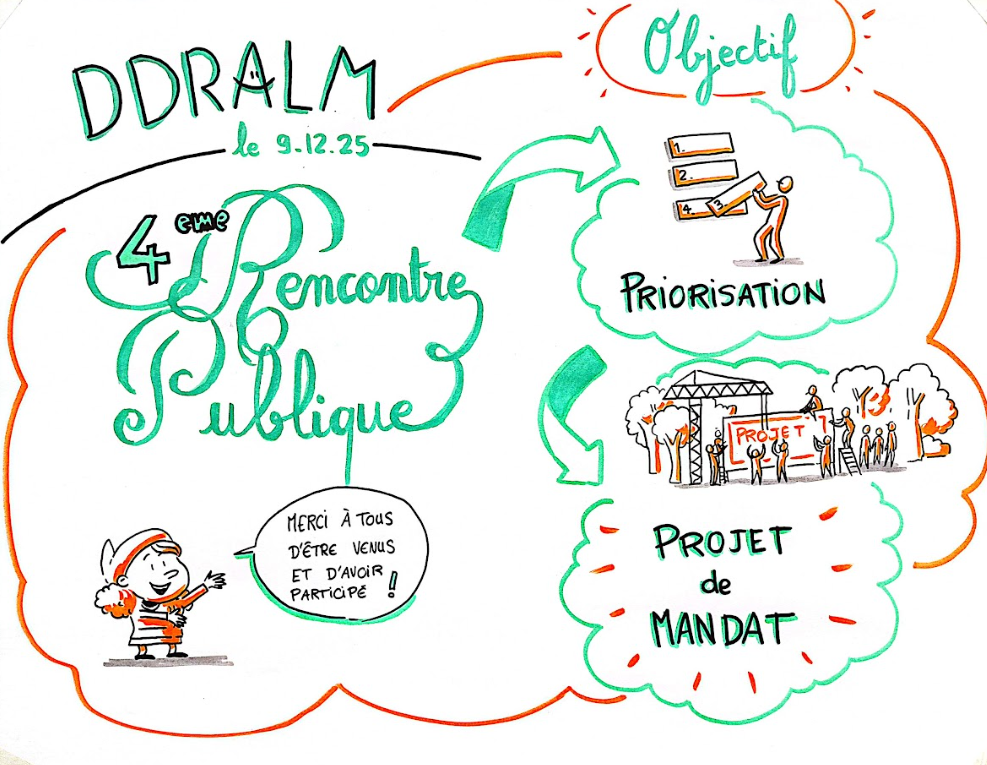 DDRALM
le 9.12.25
4eme Rencontre
Publique
MERCI À TOUS
D'ÊTRE VENUS
ET D'AVOIR
PARTICIPÉ !
Objectif
1.
2.
3.
4.
PRIORISATION
PROJET
PROJET
de
MANDAT